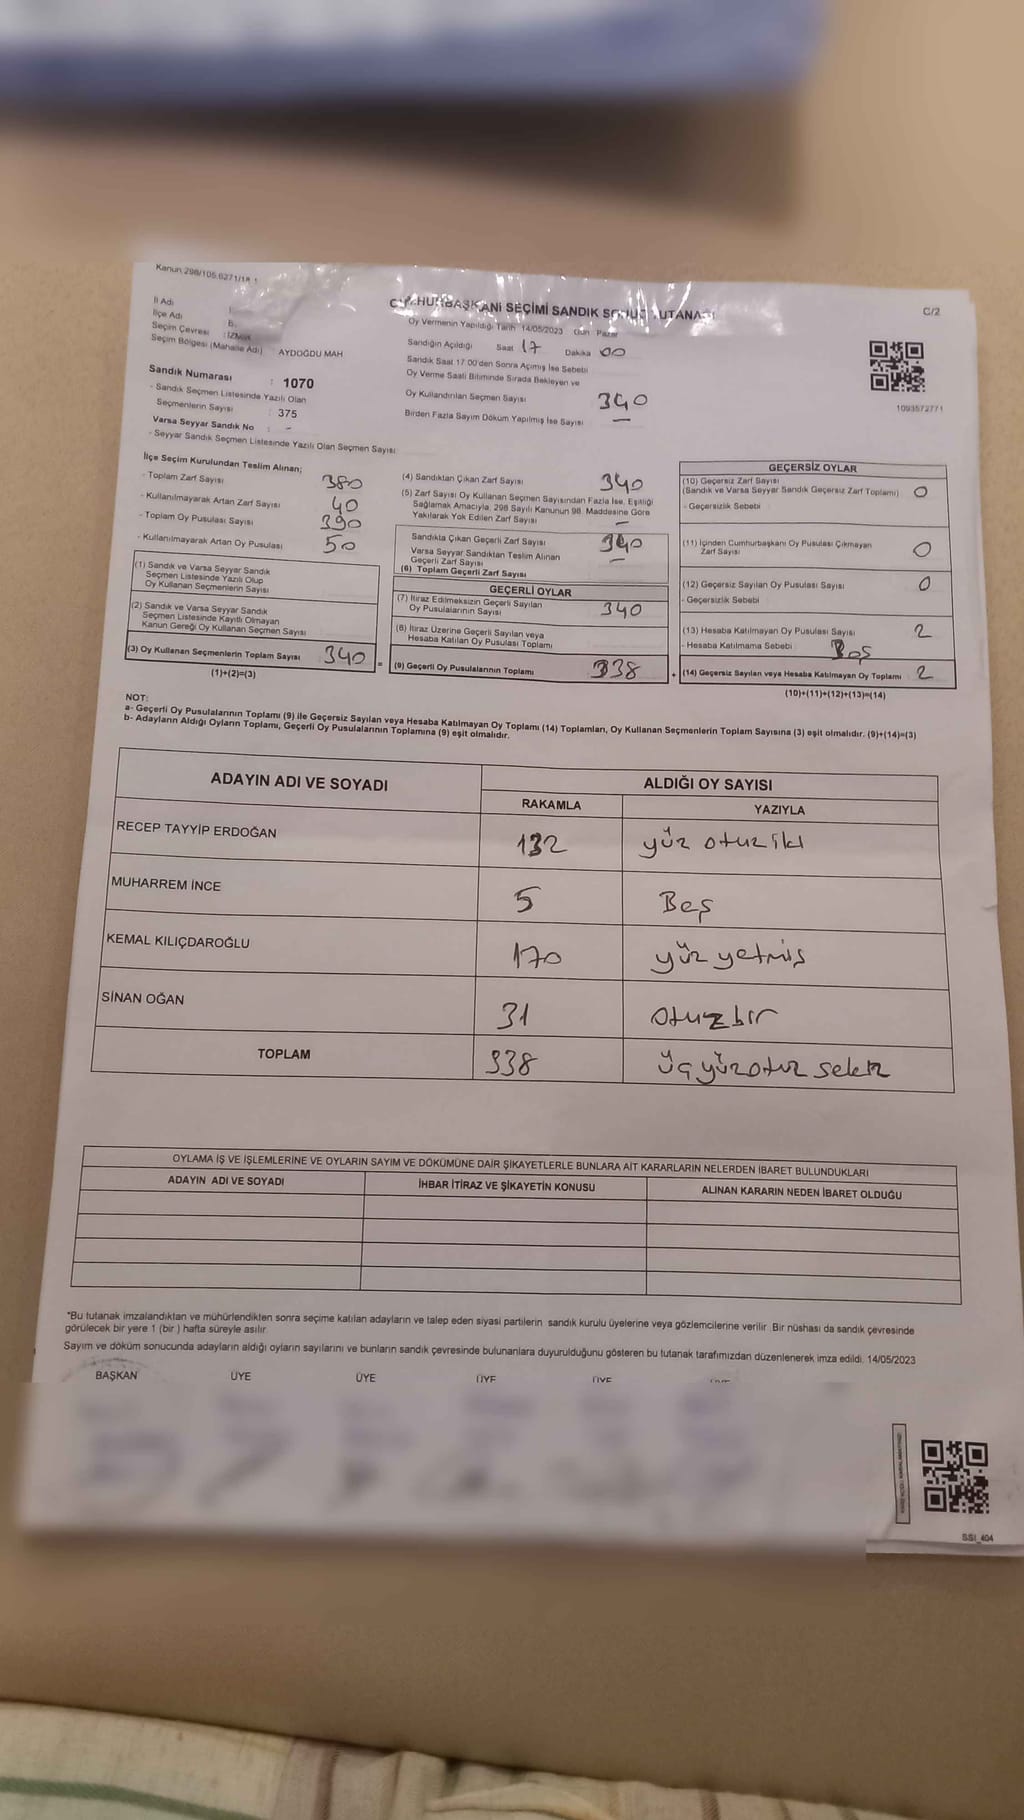 Kanun 298/105,6271/18
CUMHURBAŞKANI SEÇİMİ SANDIK SONUÇ TUTANAĞI
C/2
İl Adı
İlçe Adı
Seçim Çevresi : İZMİR
Seçim Bölgesi (Mahalle Adı) : AYDOĞDU MAH
Sandık Numarası : 1070
- Sandık Seçmen Listesinde Yazılı Olan
Seçmenlerin Sayısı : 375
Varsa Seyyar Sandık No : -
- Seyyar Sandık Seçmen Listesinde Yazılı Olan Seçmen Sayısı
Oy Vermenin Yapıldığı Tarih 14/05/2023 Gün Pazar
Sandığın Açıldığı Saat 17 Dakika 00
Sandık Saat 17:00'den Sonra Açılmış İse Sebebi
Oy Verme Saati Bitiminde Sırada Bekleyen ve
Oy Kullandırılan Seçmen Sayısı 340
Birden Fazla Sayım Döküm Yapılmış İse Sayısı —
1093572771
İlçe Seçim Kurulundan Teslim Alınan;
- Toplam Zarf Sayısı 380
- Kullanılmayarak Artan Zarf Sayısı 40
- Toplam Oy Pusulası Sayısı 390
- Kullanılmayarak Artan Oy Pusulası 50
(1) Sandık ve Varsa Seyyar Sandık
Seçmen Listesinde Yazılı Olup
Oy Kullanan Seçmenlerin Sayısı
(2) Sandık ve Varsa Seyyar Sandık
Seçmen Listesinde Kayıtlı Olmayan
Kanun Gereği Oy Kullanan Seçmen Sayısı
(3) Oy Kullanan Seçmenlerin Toplam Sayısı 340 =
(1)+(2)=(3)
(4) Sandıktan Çıkan Zarf Sayısı 340
(5) Zarf Sayısı Oy Kullanan Seçmen Sayısından Fazla İse, Eşitliği
Sağlamak Amacıyla, 298 Sayılı Kanunun 98. Maddesine Göre
Yakılarak Yok Edilen Zarf Sayısı —
Sandıkta Çıkan Geçerli Zarf Sayısı 340
Varsa Seyyar Sandıktan Teslim Alınan
Geçerli Zarf Sayısı —
(6) Toplam Geçerli Zarf Sayısı
GEÇERLİ OYLAR
(7) İtiraz Edilmeksizin Geçerli Sayılan
Oy Pusulalarının Sayısı 340
(8) İtiraz Üzerine Geçerli Sayılan veya
Hesaba Katılan Oy Pusulası Toplamı
(9) Geçerli Oy Pusulalarının Toplamı 338 +
GEÇERSİZ OYLAR
(10) Geçersiz Zarf Sayısı
(Sandık ve Varsa Seyyar Sandık Geçersiz Zarf Toplamı) 0
- Geçersizlik Sebebi
(11) İçinden Cumhurbaşkanı Oy Pusulası Çıkmayan
Zarf Sayısı 0
(12) Geçersiz Sayılan Oy Pusulası Sayısı 0
- Geçersizlik Sebebi
(13) Hesaba Katılmayan Oy Pusulası Sayısı 2
- Hesaba Katılmama Sebebi Boş
(14) Geçersiz Sayılan veya Hesaba Katılmayan Oy Toplamı 2
(10)+(11)+(12)+(13)=(14)
NOT:
a- Geçerli Oy Pusulalarının Toplamı (9) ile Geçersiz Sayılan veya Hesaba Katılmayan Oy Toplamı (14) Toplamları, Oy Kullanan Seçmenlerin Toplam Sayısına (3) eşit olmalıdır. (9)+(14)=(3)
b- Adayların Aldığı Oyların Toplamı, Geçerli Oy Pusulalarının Toplamına (9) eşit olmalıdır.
ADAYIN ADI VE SOYADI ALDIĞI OY SAYISI
RAKAMLA YAZIYLA
RECEP TAYYİP ERDOĞAN 132 yüz otuz iki
MUHARREM İNCE 5 Beş
KEMAL KILIÇDAROĞLU 170 yüz yetmiş
SİNAN OĞAN 31 otuzbir
TOPLAM 338 üçyüzotuz sekiz
OYLAMA İŞ VE İŞLEMLERİNE VE OYLARIN SAYIM VE DÖKÜMÜNE DAİR ŞİKAYETLERLE BUNLARA AİT KARARLARIN NELERDEN İBARET BULUNDUKLARI
ADAYIN ADI VE SOYADI İHBAR İTİRAZ VE ŞİKAYETİN KONUSU ALINAN KARARIN NEDEN İBARET OLDUĞU
*Bu tutanak imzalandıktan ve mühürlendikten sonra seçime katılan adayların ve talep eden siyasi partilerin sandık kurulu üyelerine veya gözlemcilerine verilir. Bir nüshası da sandık çevresinde
görülecek bir yere 1 (bir ) hafta süreyle asılır.
Sayım ve döküm sonucunda adayların aldığı oyların sayılarını ve bunların sandık çevresinde bulunanlara duyurulduğunu gösteren bu tutanak tarafımızdan düzenlenerek imza edildi. 14/05/2023
BAŞKAN ÜYE ÜYE ÜYE ÜYE ÜYE
SSI_404